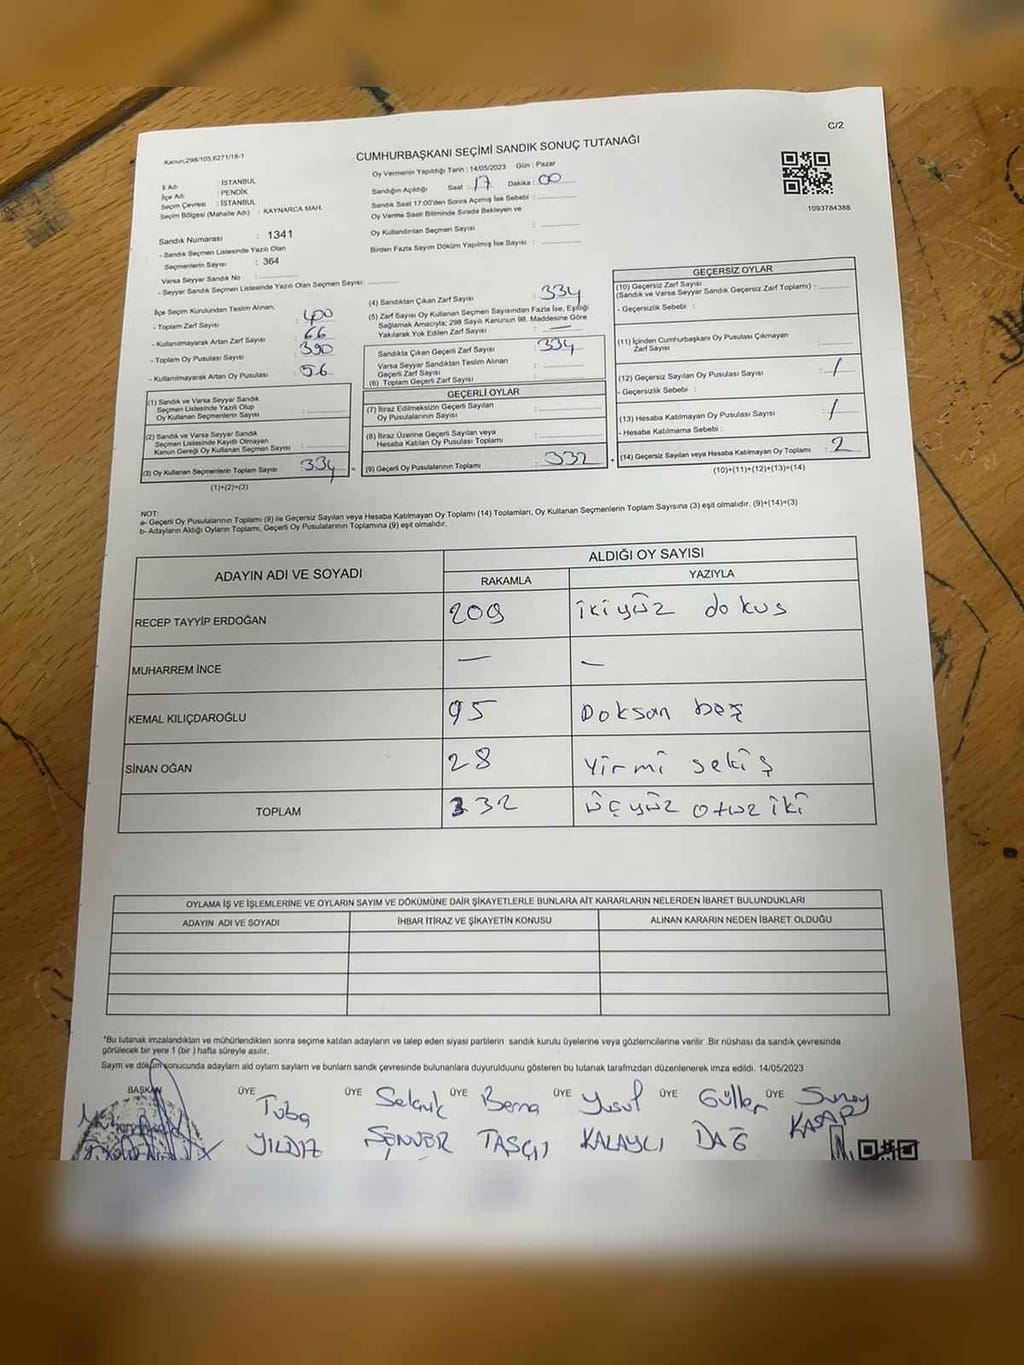 C/2
Kanun;298/105,6271/18-1
CUMHURBAŞKANI SEÇİMİ SANDIK SONUÇ TUTANAĞI
İl Adı : İSTANBUL
İlçe Adı : PENDİK
Seçim Çevresi : İSTANBUL
Seçim Bölgesi (Mahalle Adı) : KAYNARCA MAH.
Oy Vermenin Yapıldığı Tarih : 14/05/2023 Gün : Pazar
Sandığın Açıldığı Saat : 17 Dakika : 00
Sandık Saat 17:00'den Sonra Açılmış İse Sebebi :
Oy Verme Saati Bitiminde Sırada Bekleyen ve
Oy Kullandırılan Seçmen Sayısı :
Birden Fazla Sayım Döküm Yapılmış İse Sayısı :
1093784388
Sandık Numarası : 1341
- Sandık Seçmen Listesinde Yazılı Olan
Seçmenlerin Sayısı : 364
Varsa Seyyar Sandık No :
- Seyyar Sandık Listesinde Yazılı Olan Seçmen Sayısı:
İlçe Seçim Kurulundan Teslim Alınan;
- Toplam Zarf Sayısı : 400
- Kullanılmayarak Artan Zarf Sayısı : 66
- Toplam Oy Pusulası Sayısı : 390
- Kullanılmayarak Artan Oy Pusulası : 56
(1) Sandık ve Varsa Seyyar Sandık
Seçmen Listesinde Yazılı Olup
Oy Kullanan Seçmenlerin Sayısı :
(2) Sandık ve Varsa Seyyar Sandık
Seçmen Listesinde Kayıtlı Olmayan
Kanun Gereği Oy Kullanan Seçmen Sayısı :
(3) Oy Kullanan Seçmenlerin Toplam Sayısı : 334
(1)+(2)=(3)
(4) Sandıktan Çıkan Zarf Sayısı : 334
(5) Zarf Sayısı Oy Kullanan Seçmen Sayısından Fazla İse, Eşitliği
Sağlamak Amacıyla; 298 Sayılı Kanunun 98. Maddesine Göre
Yakılarak Yok Edilen Zarf Sayısı : —
Sandıkta Çıkan Geçerli Zarf Sayısı : 334
Varsa Seyyar Sandıktan Teslim Alınan
Geçerli Zarf Sayısı :
(6) Toplam Geçerli Zarf Sayısı :
GEÇERLİ OYLAR
(7) İtiraz Edilmeksizin Geçerli Sayılan
Oy Pusulalarının Sayısı :
(8) İtiraz Üzerine Geçerli Sayılan veya
Hesaba Katılan Oy Pusulası Toplamı :
(9) Geçerli Oy Pusulalarının Toplamı : 332
GEÇERSİZ OYLAR
(10) Geçersiz Zarf Sayısı
(Sandık ve Varsa Seyyar Sandık Geçersiz Zarf Toplamı) :
- Geçersizlik Sebebi :
(11) İçinden Cumhurbaşkanı Oy Pusulası Çıkmayan
Zarf Sayısı :
(12) Geçersiz Sayılan Oy Pusulası Sayısı : 1
- Geçersizlik Sebebi :
(13) Hesaba Katılmayan Oy Pusulası Sayısı : 1
- Hesaba Katılmama Sebebi :
(14) Geçersiz Sayılan veya Hesaba Katılmayan Oy Toplamı : 2
(10)+(11)+(12)+(13)=(14)
NOT:
a- Geçerli Oy Pusulalarının Toplamı (9) ile Geçersiz Sayılan veya Hesaba Katılmayan Oy Toplamı (14) Toplamları, Oy Kullanan Seçmenlerin Toplam Sayısına (3) eşit olmalıdır. (9)+(14)=(3)
b- Adayların Aldığı Oyların Toplamı, Geçerli Oy Pusulalarının Toplamına (9) eşit olmalıdır.
ADAYIN ADI VE SOYADI ALDIĞI OY SAYISI
RAKAMLA YAZIYLA
RECEP TAYYİP ERDOĞAN 209 ikiyüz dokus
MUHARREM İNCE — —
KEMAL KILIÇDAROĞLU 95 Doksan beş
SİNAN OĞAN 28 Yirmi sekiş
TOPLAM 332 üçyüz otuz iki
OYLAMA İŞ VE İŞLEMLERİNE VE OYLARIN SAYIM VE DÖKÜMÜNE DAİR ŞİKAYETLERLE BUNLARA AİT KARARLARIN NELERDEN İBARET BULUNDUKLARI
ADAYIN ADI VE SOYADI İHBAR İTİRAZ VE ŞİKAYETİN KONUSU ALINAN KARARIN NEDEN İBARET OLDUĞU
*Bu tutanak imzalandıktan ve mühürlendikten sonra seçime katılan adayların ve talep eden siyasi partilerin sandık kurulu üyelerine veya gözlemcilerine verilir .Bir nüshası da sandık çevresinde
görülecek bir yere 1 (bir ) hafta süreyle asılır.
Sayım ve döküm sonucunda adayların ald oyların sayların ve bunların sandk çevresinde bulunanlara duyurulduunu gösteren bu tutanak tarafmzdan düzenlenerek imza edildi. 14/05/2023
BAŞKAN ÜYE ÜYE ÜYE ÜYE ÜYE ÜYE
Tuba Selcuk Berna Yusuf Güller Sunay
YILDIZ ŞENVER TAŞÇI KALAYCI DAĞ KASAP